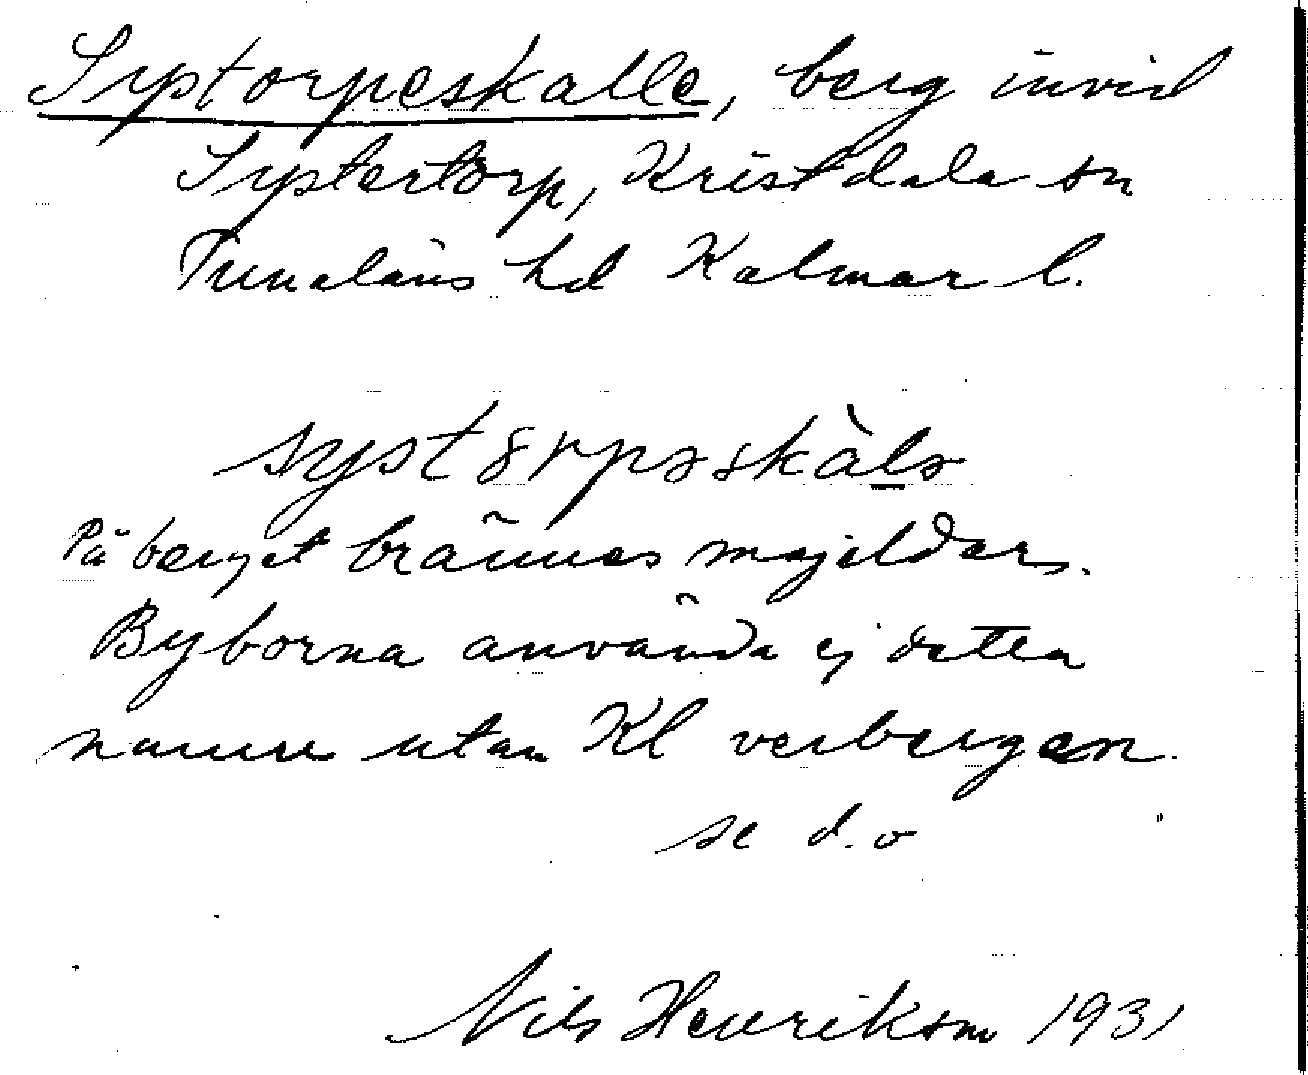 Systorpeskalle, berg invid
Systertorp, Kristdala sn
Tunaläns hd Kalmar l.
systȣrpəskàlə
På berget brännes majeldar.
Byborna använda ej detta
namn utan Kl verbergen.
se d. o
Nils Henrikson 1931